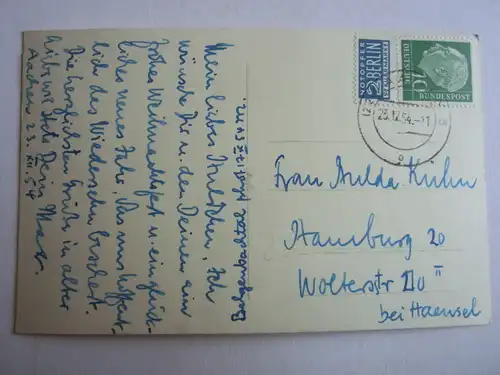 Mein liebes Huldchen, Ich
wünsche Dir u. den Deinen ein
frohes Weihnachtsfest u. ein glück-
liches neues Jahr, das uns hoffent-
lich das Wiedersehen beschert.
Die herzlichsten Grüße in alter
wie stets Dein Max.
Aachen 23. XII. 54
NOTOPFER
2 BERLIN
STEUERMARKE
DEUTSCHE
BUNDESPOST
10
23.12.54.-21
Frau Hulda Kuhn
Hamburg 20
Wolterstr
II
bei Haensel